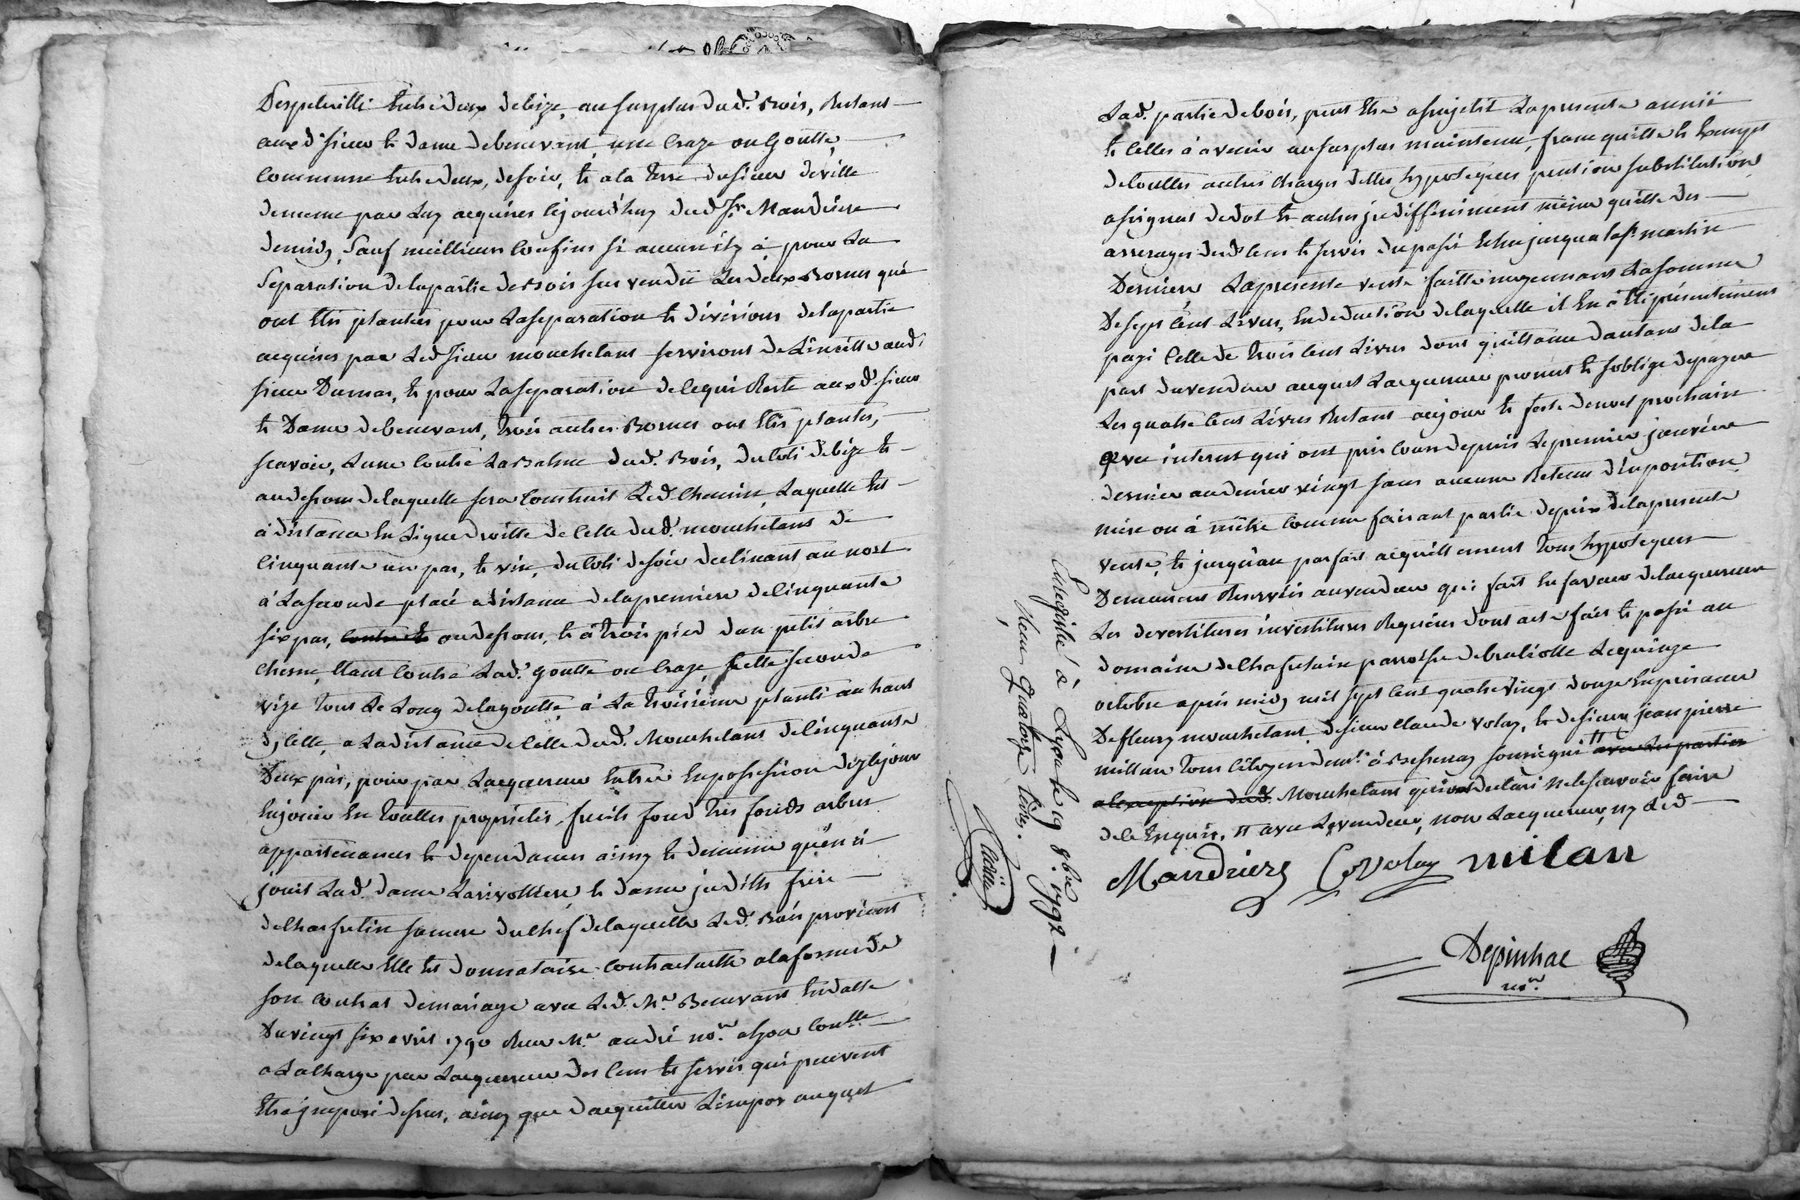 Despeluilli Entre deux debize, au surplus dud. Bois, Restant
aux d. sieur & dame debenevant, une Craze ou Goutte
Commune Entre deux, desoir, & a la terre dusieur deville
dememe par Luy acquises cejourd'huy dud. Sr. Mandiere
demidy, Sauf meilleurs Confins si aucuns ily à, pour La
Separation delapartie debois sus vendüe Les deux Bornes qui
ont Etés plantées pour Laseparation & divisions delapartie
acquises par Led. sieur mouchelans serviront de Limitte aud.
sieur Dumas, & pour Laseparation de cequi Reste aux d. sieur
& Dame debenevant, trois autres Bornes ont Etés plantés,
scavoir, Lune Contre La Balme dud. Bois, du Coté debize &
audessous delaquelle sera Construit Led. Chemin, Laquelle Est
à distance En Ligne droitte de Celle dud. mouchelans de
Cinquante un pas, & vise, du Coté desoir declinant au nort
à Laseconde placé adistance delapremiere de Cinquante
six pas, audessous, & à trois pied dun petit arbre
chesne, Etant Contre Lad. Goutte ou Craze, Cette seconde
vize tout Le Long delagoutte à La troisieme planté au haut
dycelle, a Ladistance de Celle dud. Mouchelans de Cinquante
Deux pas, pour par Lacquereur Entrer En possession dezlejour
Enjouir En touttes proprietés, fruits fond tres fonds arbres
appartenances & dependances ainsy & dememe quen à
jouis Lad. dame Larivolliere & dame judith frere
dechasfetin samere duchef delaquelle Led. Bois provient
delaquelle Elle Est donnataire Contractuelle alaforme de
son Contrat demariage avec Led. Mr. Benevant En datte
Du vingt six avril 1790 Receu Mr. andré nore. alyon Contlle
a Lacharge par Lacquereur des Cens & servis qui peuvent
Etre jmposé dessus, ainsy que dacquitter Limpot auquel
Lad. partie debois, peut Etre assujetit Lapresente année
& Celles à avenir ausurplus maintenue, franc quitte & Exempt
detouttes autres charges dettes hypoteques pention substitution
assignat dedot & autres jndifferemment meme quitte des
arrerages desd. Cens & servis dupassé Echu jusqua la St. martin
Derniere Lapresente vente faitte moyennant Lasomme
Desept Cent Livres, En deduction delaquelle il En à Eté présentement
payé Celle de trois Cent Livres dont quittance dautant dela
part duvendeur auquel Lacquereur promet & soblige depayer
Les quatre Cent Livres Restant aujour & feste denoel prochain
avec interest qui ont pris Cours depuis Lepremier janvier
dernier audenier vingt sans aucune Retenue dimposition
mise ou à mettre Comme faisant partie duprix delapresente
vente, & jusquau parfait acquittement tous hypoteques
Demeurent Reservés auvendeur qui fait En faveur delacquereur
Les devestitures investitures Requises dont acte fait & passé au
domaine dechafetain parroisse debruliolle Lequinze
octobre après midy mil sept Cent quatrevingt douze Enpresence
Defleury mouchelant, desieur Claude volay, & desieur jean pierre
millan tous Citoyen demt. à Bessenay soussignés avec Les parties
alexeption dud. Mouchelant qui ont declaré nelesçavoir faire
de ce Enquis. avec Levendeur, non Lacquereur, ny Led.
Mandiere C. Volay milan
Depinhac
nore.
Enregistré à Lyon le 19 8bre 1792
Reçu quatorze livres.